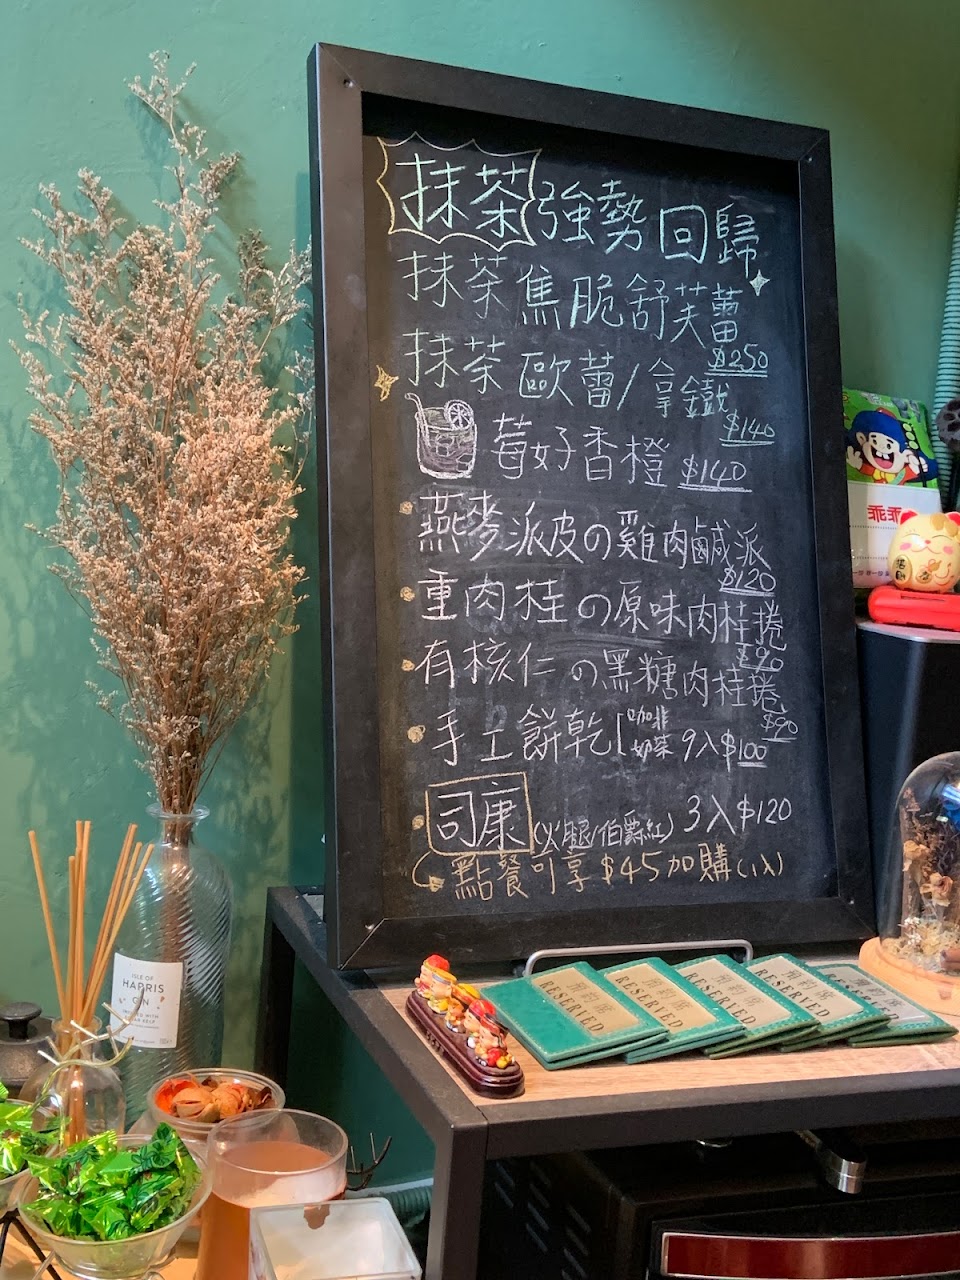 抹茶強勢回歸
抹茶焦脆舒芙蕾
$250
抹茶歐蕾/拿鐵
$140
莓好香橙 $140
燕麥派皮の雞肉鹹派
$120
重肉桂の原味肉桂捲
$90
有核仁の黑糖肉桂捲
$90
手工餅乾 咖啡 奶茶 9入$100
司康(火腿/伯爵紅) 3入$120
點餐可享$45加購(1入)
ISLE OF
HARRIS
GIN
RESERVED
RESERVED
RESERVED
RESERVED
RESERVED
乖乖